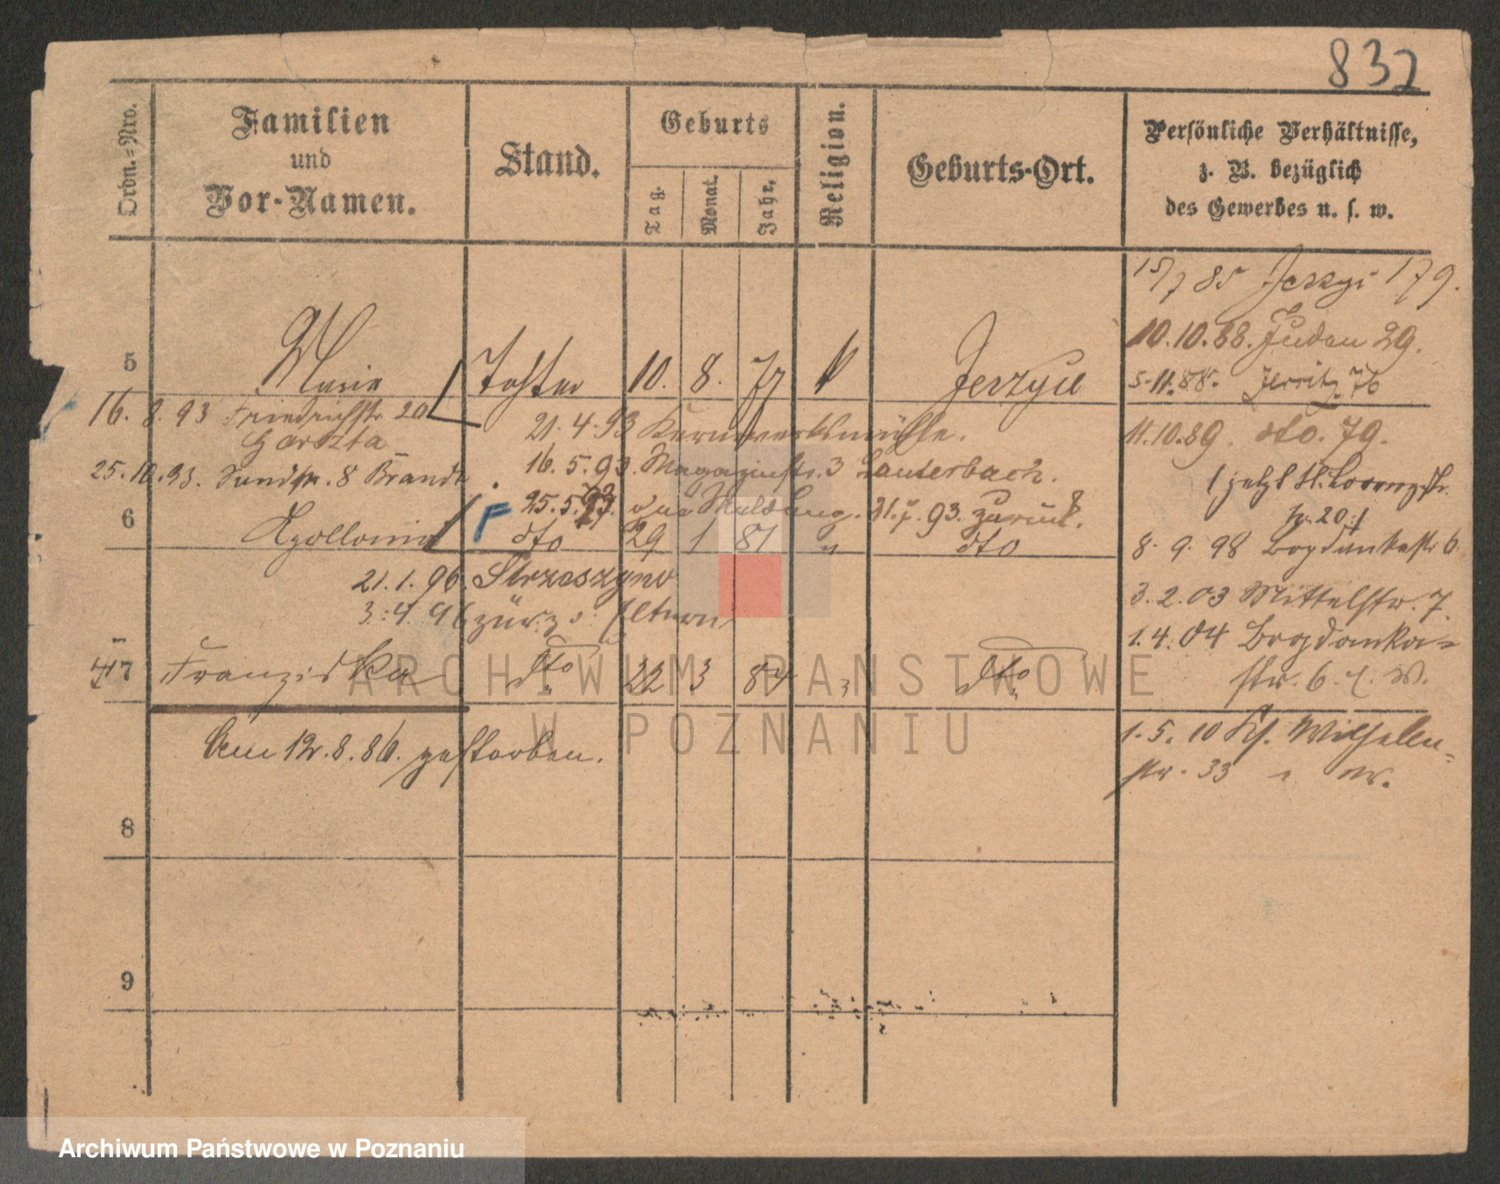 832
Ordn.-Nro.
Familien
und
Vor-Namen.
Stand.
Geburts
Tag.
Monat.
Jahr.
Religion.
Geburts-Ort.
Persönliche Verhältnisse,
z. B. bezüglich
des Gewerbes u. s. w.
15/7 85 Jerzyce 179.
10.10.88. Juden 29.
5 Maria Tochter 10. 8. 77 k Jerzyce
5.11.88. 76
16. 8. 93 Friedrichstr 20
Garszta
21.4.93 Kernwerksmühle.
11.10.89. dto. 79.
25.10.93. 8 Brandt
16.5.93. Magazinstr. 3 Lauterbach.
(jetzt
nr. 20.)
25.5. Meldung. 93. zurück.
6 Apollonia F dto 29 1 81 " dto
8. 9. 98 Bogdankastr 6
21.1.96. Strzeszyno
3.4.96 zur. z. d. Eltern
3.2.03 Mittelstr. 7.
1.4.04 Bogdanka-
str. 6. W.
7 Franziska dto 22 3 84 " dto
Am 12.8.86. gestorben.
1.5.10 Wilhelm-
str. 33
8
9
ARCHIWUM PAŃSTWOWE
W POZNANIU
Archiwum Państwowe w Poznaniu